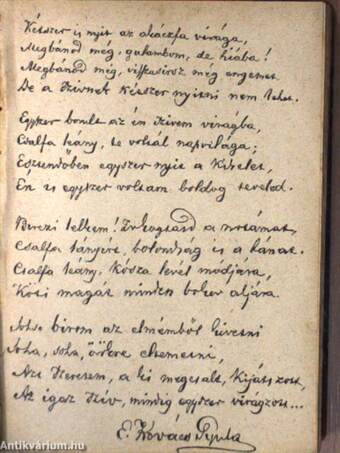 Kétszer is nyit az akáczfa virága,
Megbánod még, galambom, de hiába!
Megbánod még, visszasírsz még engemet
De a szivnek kétszer nyitni nem lehet.

Egyszer borult az én szivem virágba,
Csalfa leány, te voltál napvilága;
Esztendőben egyszer nyit a kikelet,
Én is egyszer voltam boldog teveled.

Berczi lelkem! Zokogtasd a nótámat,
Csalfa lányért, bolondság is a bánat.
Csalfa leány, kósza levél módjára,
Köti magát minden bokor aljára.

Soh'se birom az elmémből kivetni
Soha, soha, örökre eltemetni,
Azt szeretem, a ki megcsalt, kijátszott,
Az igaz sziv, mindig egyszer virágzott...

E. Kovács Gyula
Antikvárium.hu